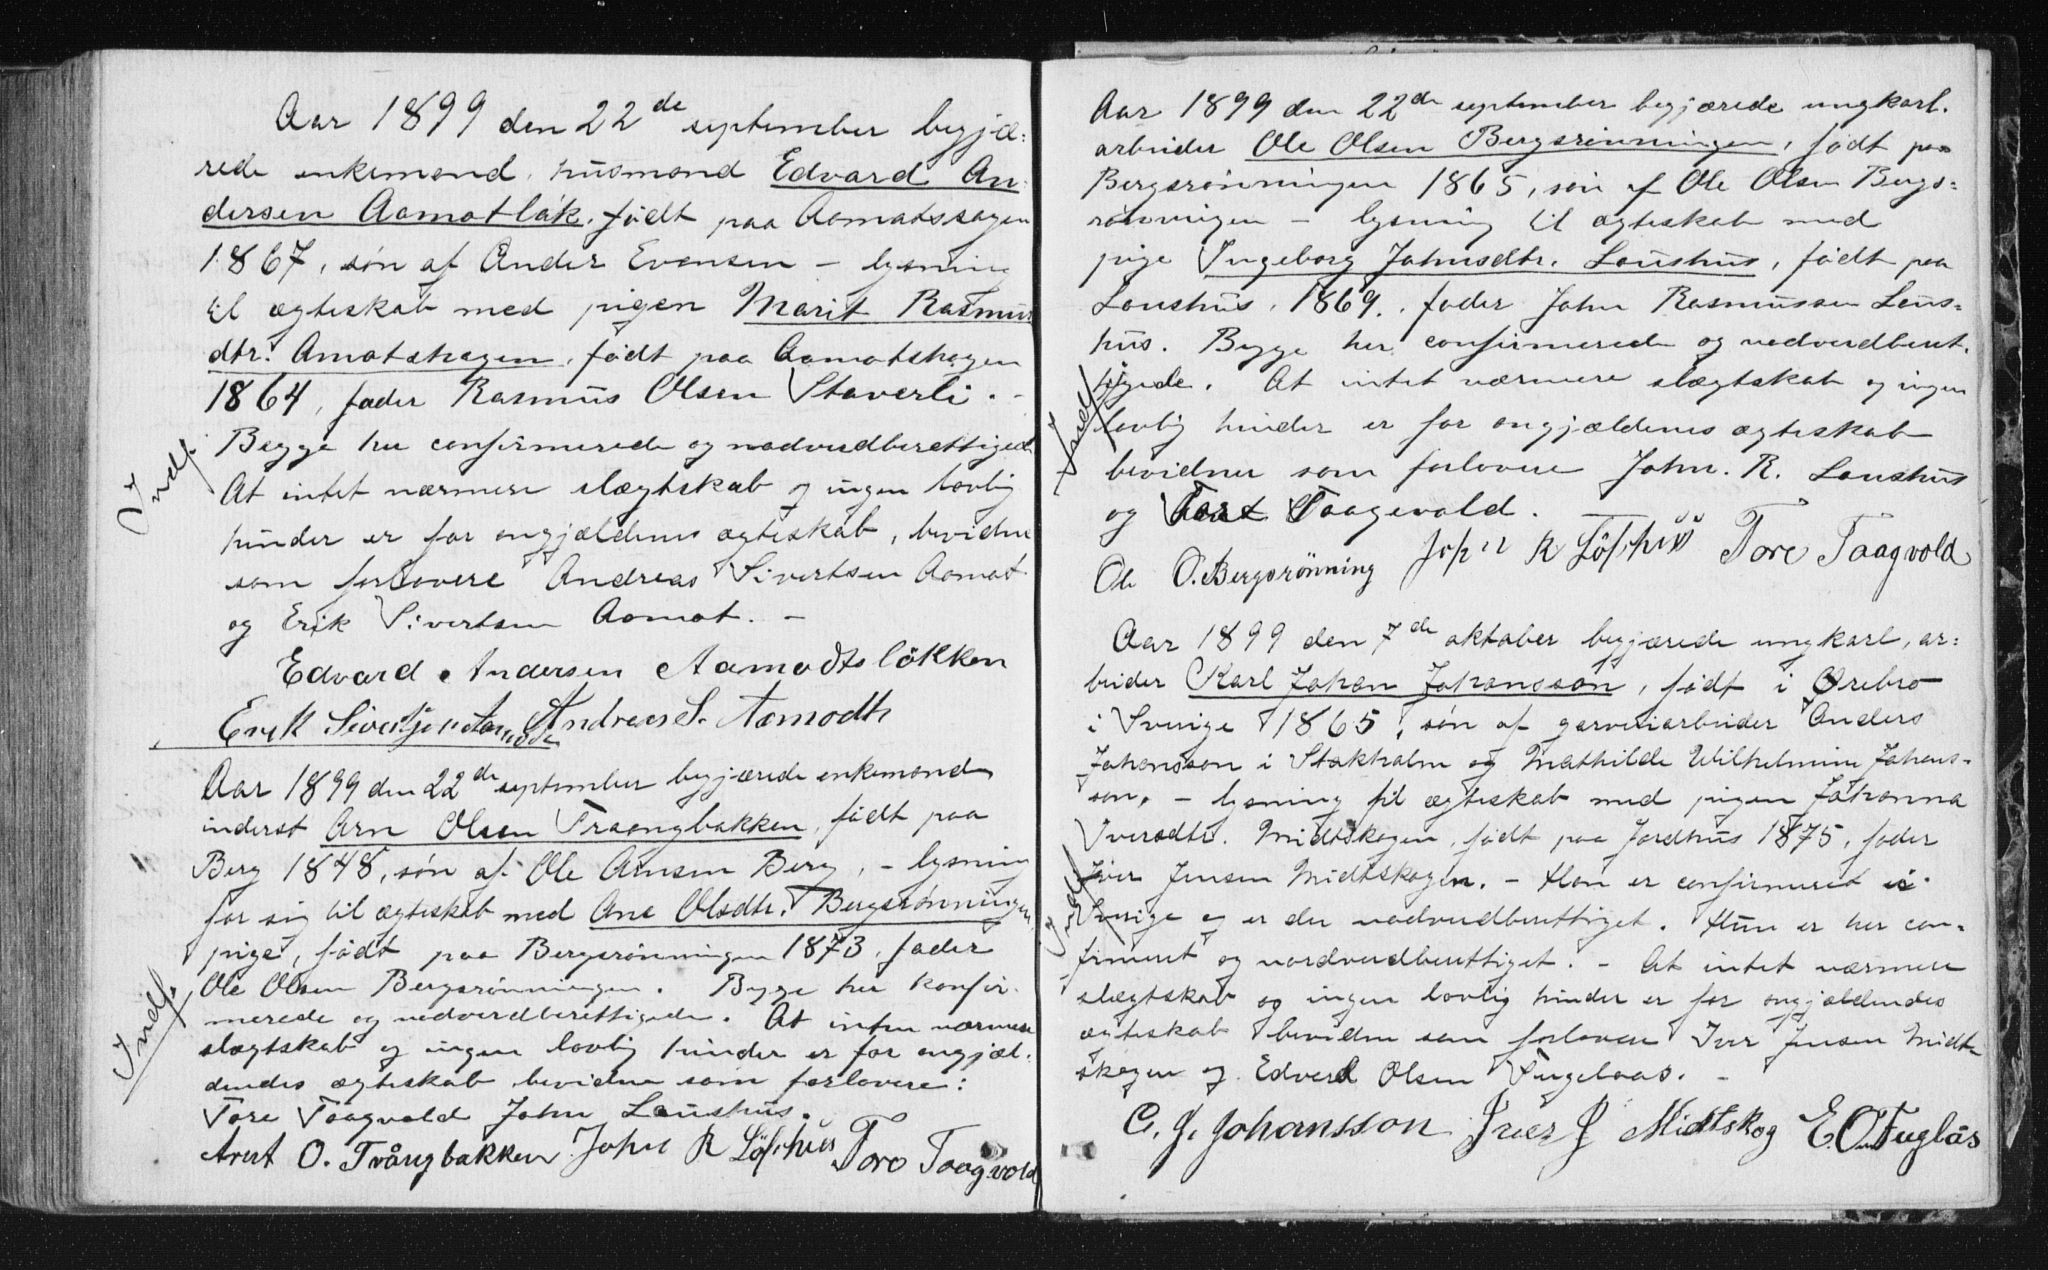 Aar 1899 den 22de september begjæ:
rede enkemand, husmand Edvard An:
dersen Aamotløk, født paa Aamotshagen
1867, søn af Ander Evensen – lysning
til ægteskab med pigen Marit Rasmus
dtr. Amotshagen, født paa Aamotshagen
1864, fader Rasmus Olsen Staverli. –
Begge her confirmerede og nadverdberettigede
At intet nærmere slægtskab og ingen lovlig
hinder er for angjældenes ægteskab, bevidne
som forlovere Andreas Sivertsen Aamot
og Erik Sivertsen Aamot. –
Indf.
Edvard Andersen Aamodtsløkken
Erik Sivertsen Aamodt Andreas S. Aamodt
Aar 1899 den 22de september begjærede enkemand
inderst Arn Olsen Traangbakken, født paa
Berg 1848, søn af Ole Arnsen Berg, – lysning
for sig til ægteskab med Ane Olsdtr. Bergsrønningen
pige, født paa Bergsrønningen 1873, fader
Ole Olsen Bergsrønningen. Begge her konfir-
merede og nadverdberettigede. At inten nærmere
slægtskab og ingen lovlig hinder er for angjæl:
dendes ægteskab bevidne som forlovere:
Tore Taagvald John Laushus.
Indf.
Arnt O. Trångbakken John R Löfshus Tore Taagvold
Aar 1899 den 22de september begjærede ungkarl.
arbeider Ole Olsen Bergsrønningen, født paa
Bergsrønningen 1865, søn af Ole Olsen Bergs=
rønningen – lysning til ægteskab med
pige Ingeborg Johnsdtr. Laushus, født paa
Laushus, 1869, fader John Rasmussen Laus=
hus. Begge her confirmerede og nadverdberet.
tigede. At intet nærmere slægtskab og ingen
lovlig hinder er for angjældenes ægteskab
bevidner som forlovere John. R. Laushus
og Tore Taagevald.
Indf.
Ole O. Bergsrønning John R Löfshus Tore Taagvold
Aar 1899 den 7de oktober begjærede ungkarl, ar=
beider Karl Johan Johansson, født i Ørebro
i Sverige 1865, søn af garveriarbeider Anders
Johansson i Stokholm og Mathilde Wilhelmine Johans-
son, – lysning til ægteskab med pigen Johanna
Iversdtr. Midtskogen, født paa Jordhus 1875, fader
Iver Jensen Midtskogen. – Han er confirmeret i
Sverige og er der nadverdberettiget. Hun er her con-
firmeret og nadverdberettiget. – At intet nærmere
slægtskab og ingen lovlig hinder er for angjældendes
ægteskab bevidne som forlovere Iver Jensen Midt
skogen og Edvard Olsen Fugelaas. –
Indf.
C. J. Johansson Iver J Midtskog E. Olsen Fuglås